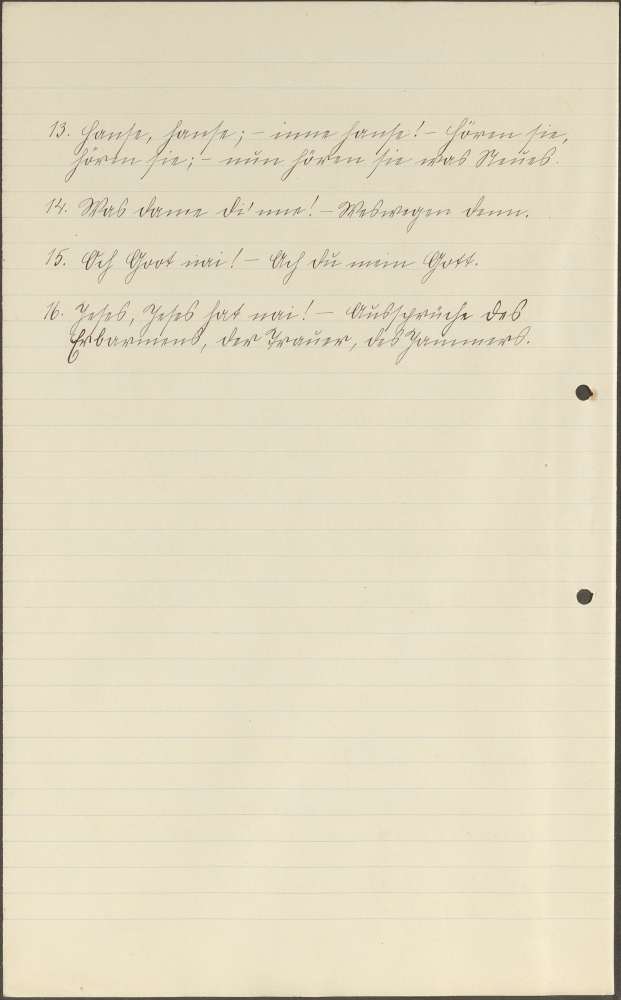 13. Hanse, hanse; – inne hanse! – Hören sie,
hören sie; – nun hören sie was Neues.
14. Was dame di'nne! – Weswegen denn.
15. Och Goot nai! – Ach du mein Gott.
16. Jeses, Jeses hat nai! – Aussprüche des
Erbarmens, der Trauer, des Jammers.